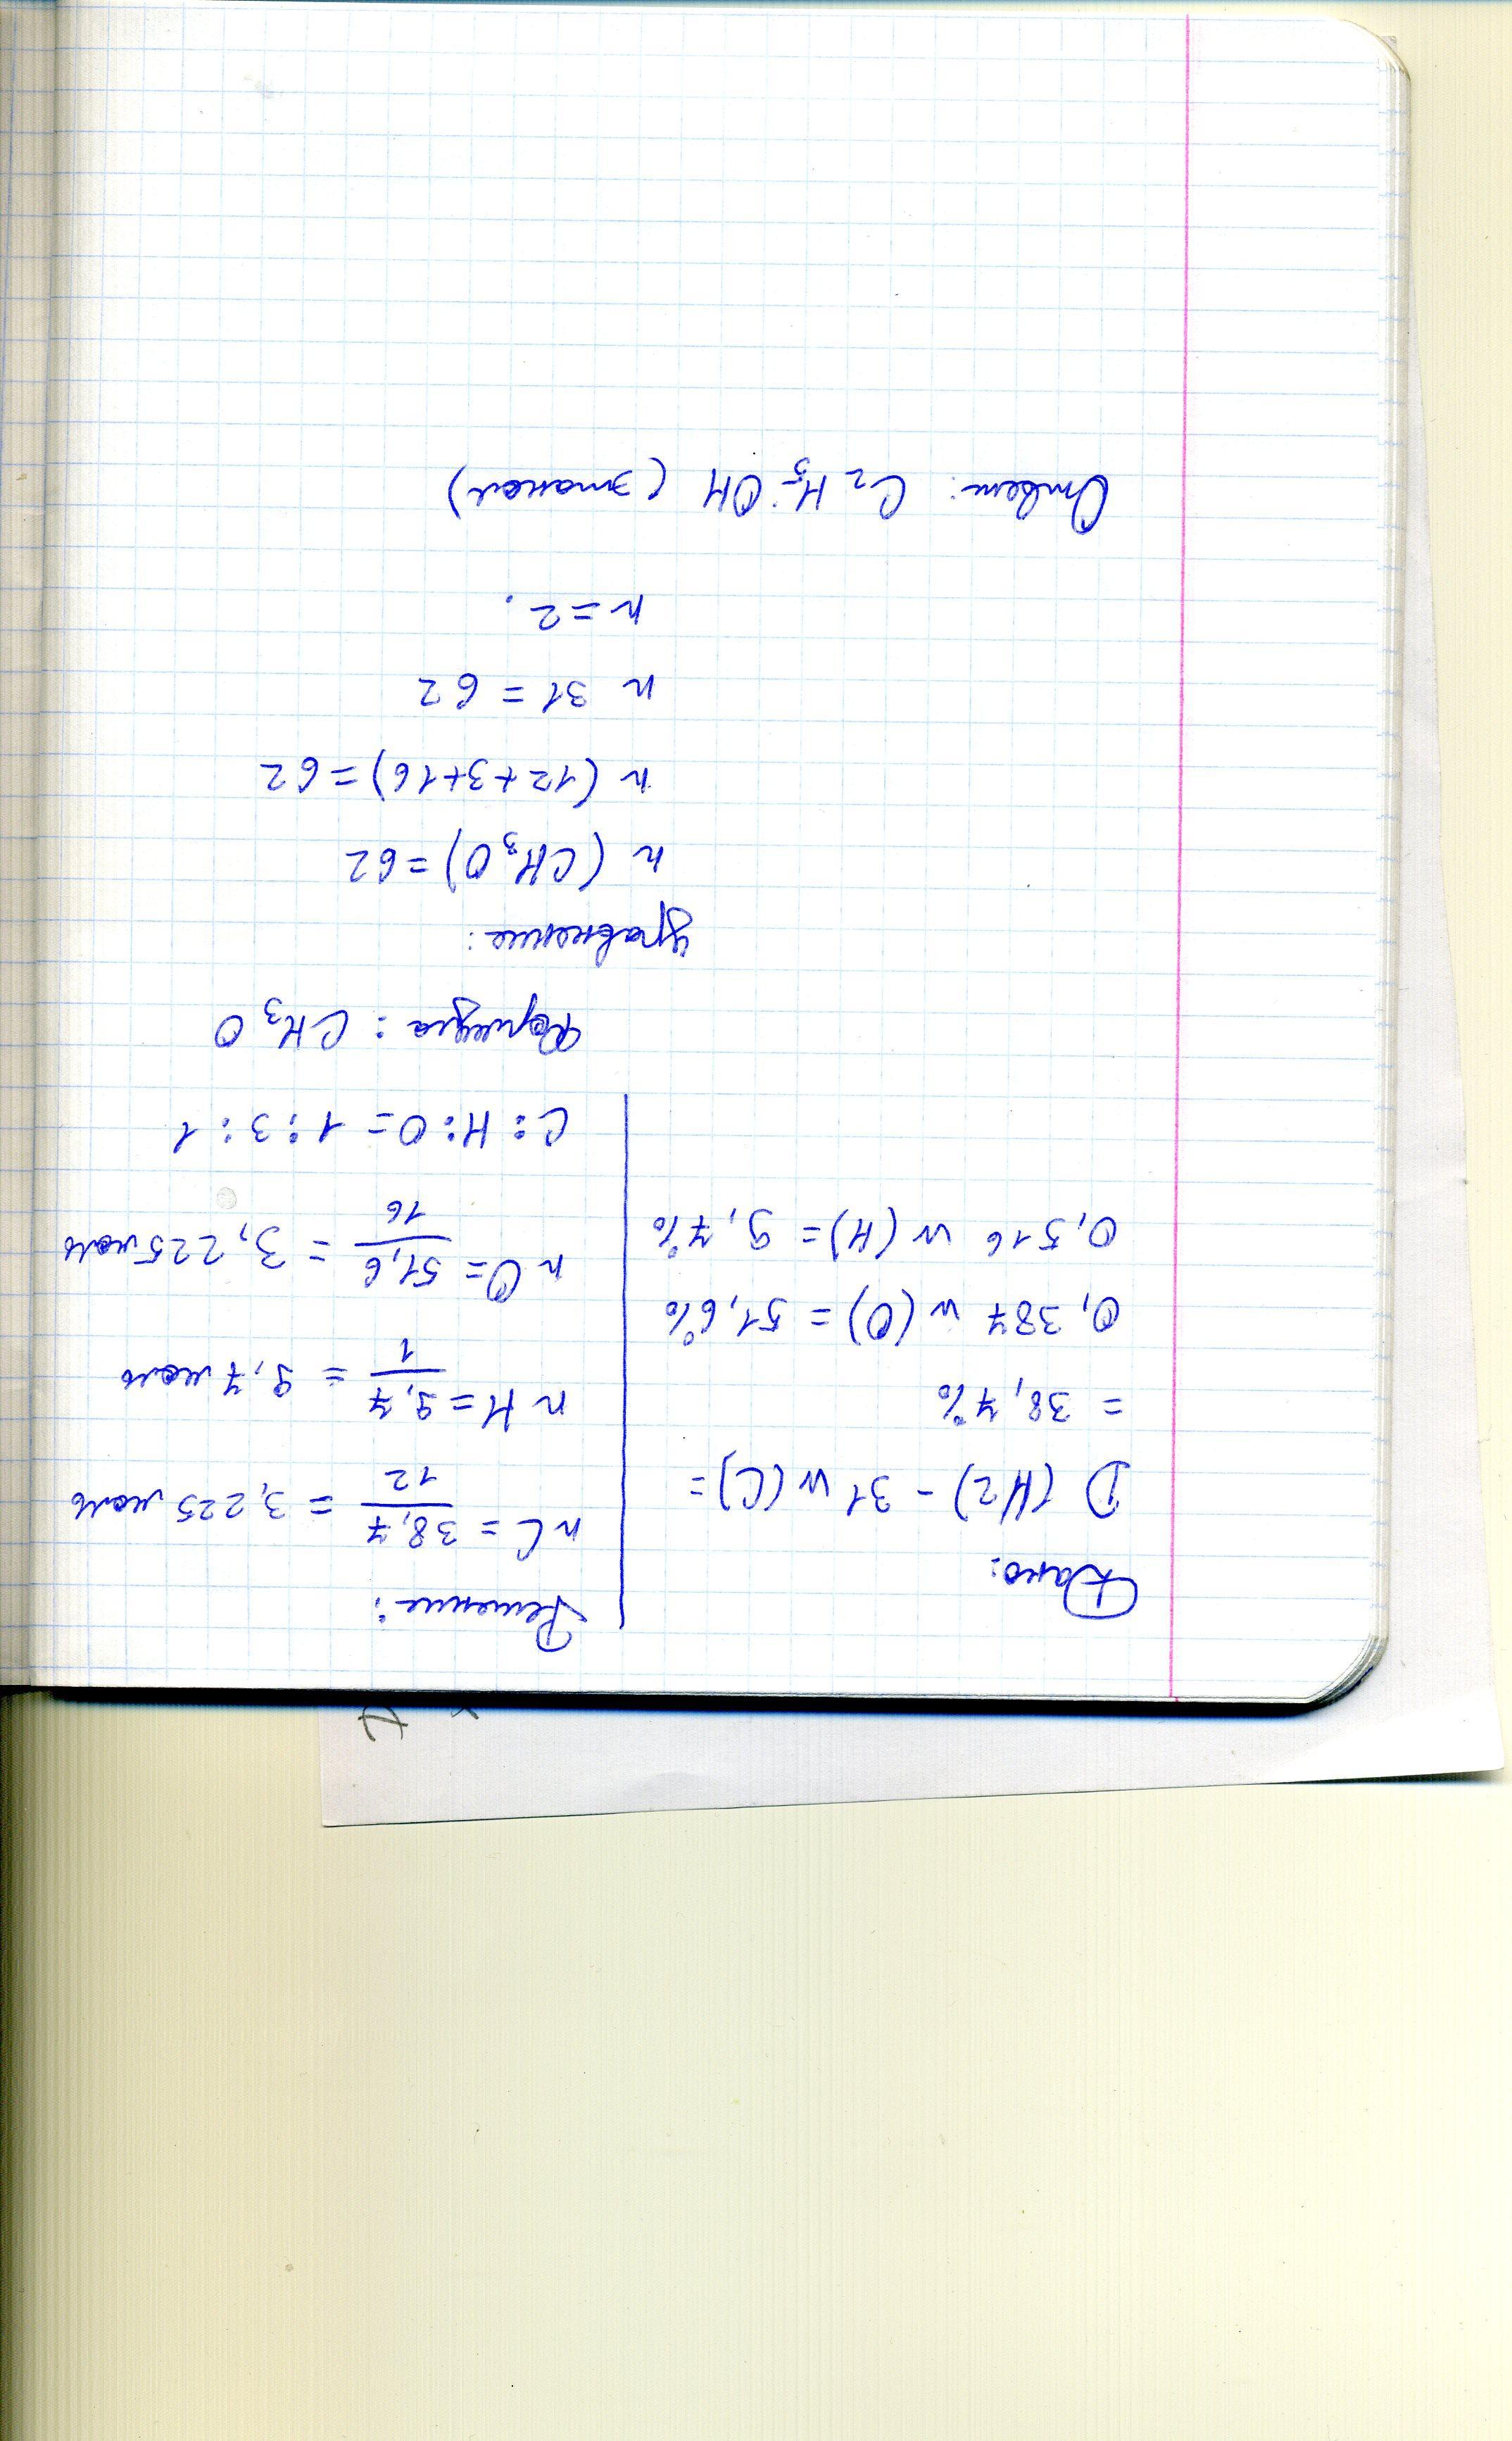 Дано:
D (H2) - 31 w (C) =
= 38,7%
0,387 w (O) = 51,6%
0,516 w (H) = 9,7%
Решение:
n C = 38,7/12 = 3,225 моль
n H = 9,7/1 = 9,7 моль
n O = 51,6/16 = 3,225 моль
C : H : O = 1 : 3 : 1
Формула : CH₃O
Уравнение :
n (CH₃O) = 62
n (12+3+16) = 62
n 31 = 62
n = 2 .
Ответ : C₂H₅OH (этанол)